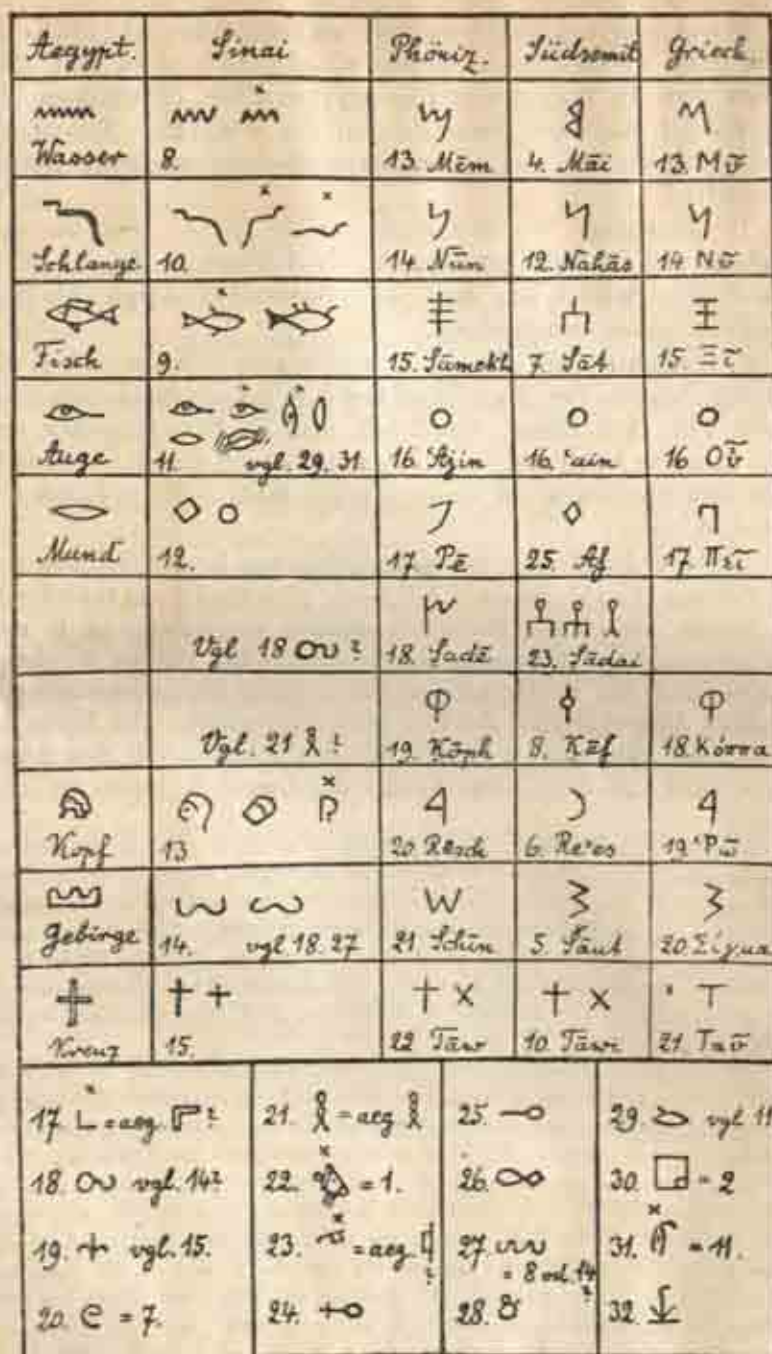 Aegypt. Sinai Phöniz. Südsemit Griech.
Wasser 8. 13. Mēm 4. Māi 13. Μῦ
Schlange 10. 14. Nūn 12. Nahās 14. Νῦ
Fisch 9. 15. Sāmekh 7. Sāt 15. Ξῖ
Auge 11. vgl. 29. 31. 16. 'Ajin 16. 'ain 16 Οὖ
Mund 12. 17. Pē 25. Af 17. Πεῖ
Vgl 18 ? 18. Sadē 23. Sādai
Vgl. 21 ? 19. Kōph 8. Kāf 18. Κόππα
Kopf 13 20. Rēsch 6. Re'es 19. Ῥῶ
Gebirge 14. vgl. 18. 27 21. Schīn 5. Šāut 20. Σίγμα
Kreuz 15. 22 Tāw 10. Tāwi 21. Ταῦ
17. = aeg. ? 21. = aeg 25. 29. vgl 11
18. vgl. 14? 22. = 1. 26. 30. = 2
19. vgl. 15. 23. = aeg. ? 27. = 8 od. 14 ? 31. = 11.
20. = 7. 24. 28. 32.